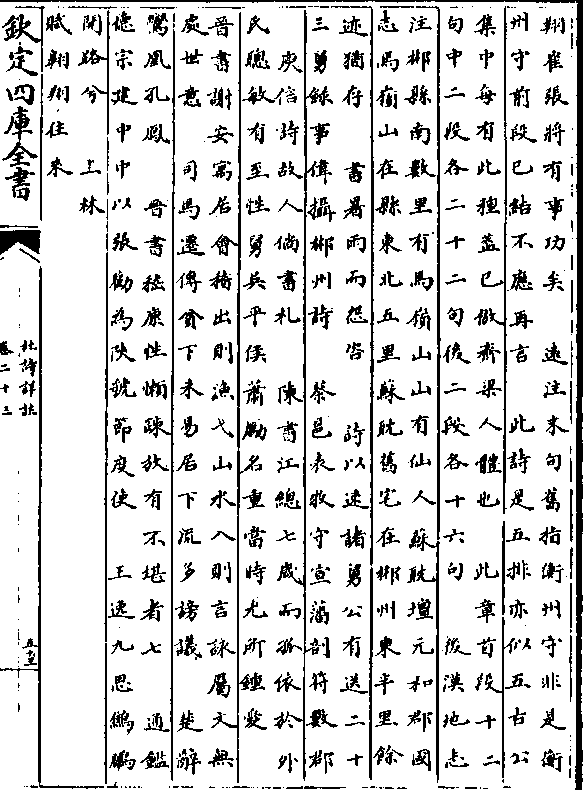 翔崔張將有事功矣　遠注末句舊指衡州守非是衡
州守前段已結不應再言　此詩是五排亦似五古公
集中每有此種蓋已倣齊梁人體也　此章首段十二
句中二段各二十二句後二段各十六句　後漢地志
注郴縣南數里有馬嶺山山有仙人蘇耽壇元和郡國
志馬嶺山在縣東北五里蘇耽舊宅在郴州東半里餘
迹猶存　書暑雨而怨咨　詩以速諸舅公有送二十
三舅錄事偉攝郴州詩　蔡邕表牧守宣藩剖符數郡
　庾信詩故人倘書札　陳書江總七歲而孤依於外
氏聰敏有至性舅吳平侯蕭勱名重當時尤所鍾愛
晉書謝安寓居會稽出則漁弋山水入則言詠屬文無
處世意　司馬遷傳負下未易居下流多謗議　楚辭
鸞鳳孔鳳　晉書嵇康性懶疎放有不堪者七　通鑑
德宗建中中以張勸為陜虢節度使　王逸九思鵷鶵
開路兮　上林
賦翔翔往來
欽定四庫全書
杜詩詳註
卷二十三